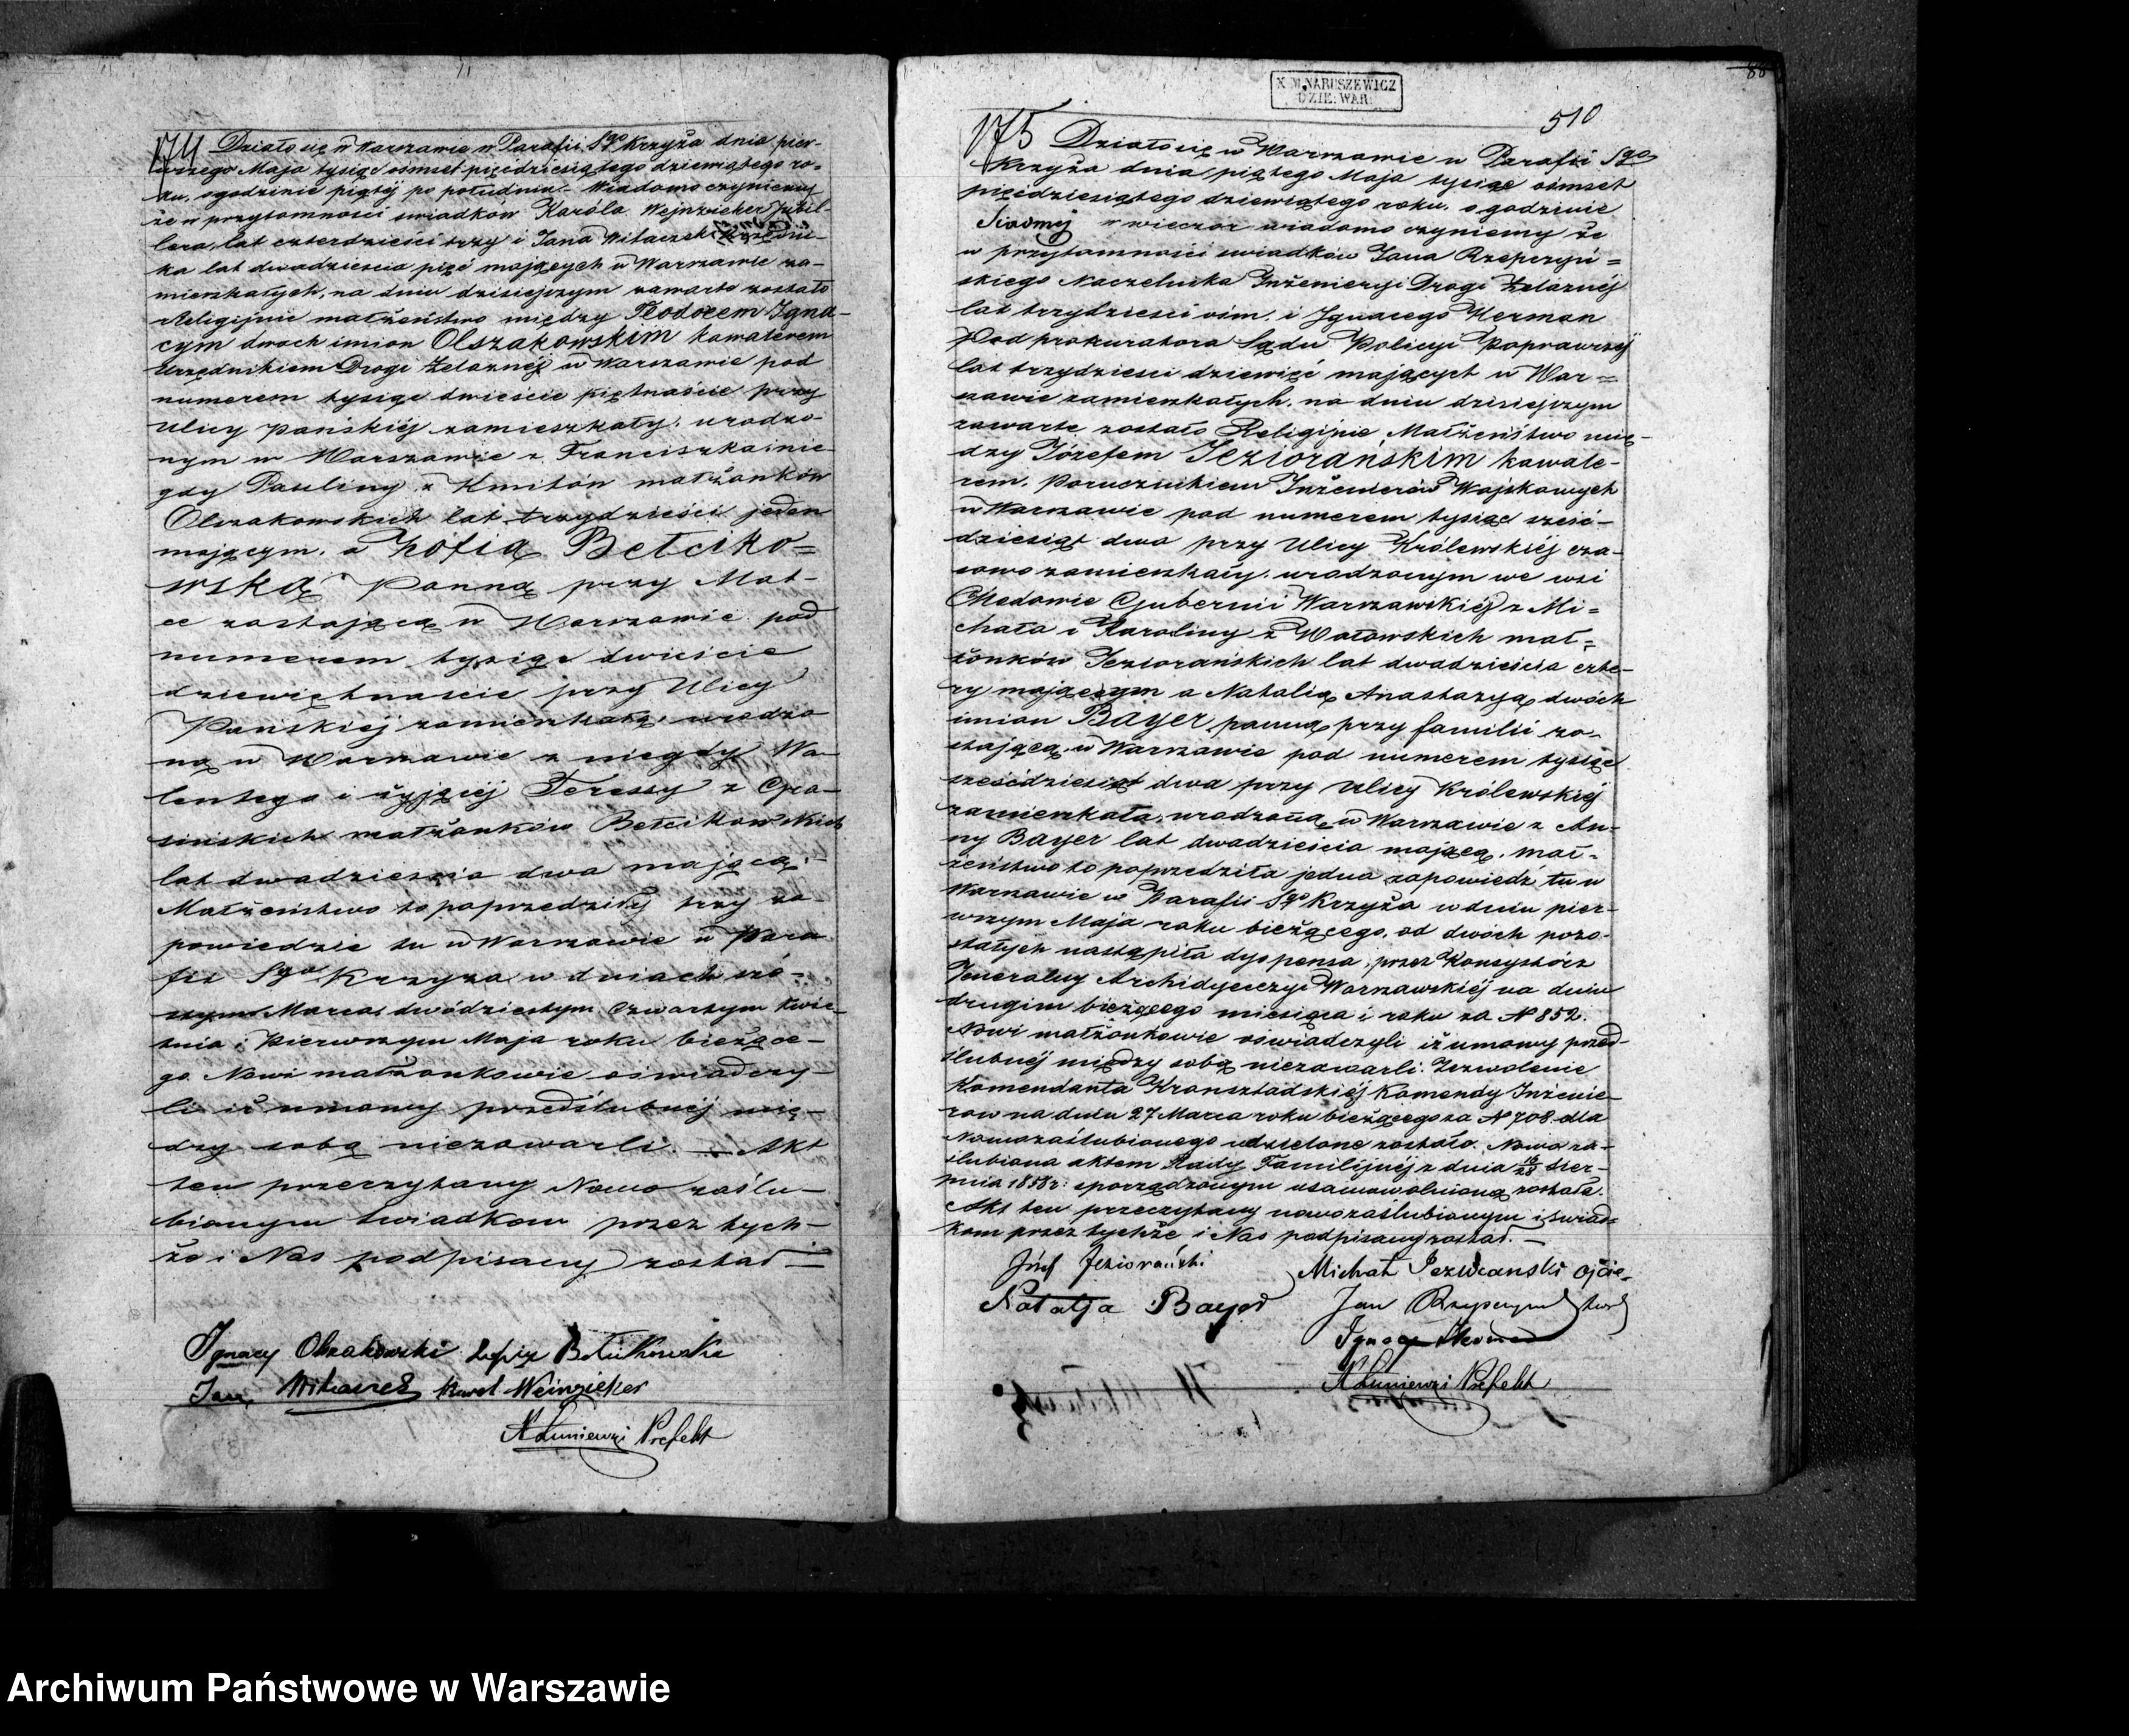 174 Działo się w Warszawie w Parafii Sgo Krzyża dnia pier-
wszego Maja tysiąc ośmset pięćdziesiątego dziewiątego ro-
ku, o godzinie piątéj po południu. Wiadomo czyniemy
że w przytomności świadków Karóla Wejnzieher Jubil-
lera, lat czterdzieści trzy i Jana Witaczek Urzędni-
ka lat dwadzieścia pięć mających w Warszawie za-
mieszkałych, na dniu dzisiejszym zawarte zostało
Religijne małżeństwo między Teodorem Igna-
cym dwóch imion Olszakowskim kawalerem
Urzędnikiem Drogi Żelaznéj w Warszawie pod
numerem tysiąc dwieście piętnaście przy
ulicy Pańskiéj zamieszkały, urodzo-
nym w Warszawie z Franciszka i nie-
gdy Pauliny z Kmitów małżonków
Olszakowskich lat trzydzieści jeden
mającym, a Zofią Bełciko=
wską Panną przy Mat-
ce zostającą w Warszawie pod
numerem tysiąc dwieście
dziewiętnaście przy Ulicy
Pańskiéj zamieszkałą, urodzo
ną w Warszawie z niegdy Wa-
lentego i żyjącéj Teressy z Gra-
sińskich małżonków Bełcikowskich
lat dwadzieścia dwa mającą.-
Małżeństwo to poprzedziły trzy za-
powiedzie tu w Warszawie w Para
fii Sgo Krzyża w dniach szó-
stym Marca, dwódziestym czwartym Kwie-
tnia i Pierwszym Maja roku bieżące-
go. Nowi małżonkowie oświadczy-
li iż umowy przedślubnéj mię-
dzy sobą niezawarli. - Akt
ten przeczytany Nowo zaślu-
bionym świadkom przez tych-
że i Nas podpisany został -
Ignacy Olszakowski Zofija Bełcikowska
Jan Witaczek Karol Weinzieher
N Łuniewski Prefekt
X. M. NARUSZEWICZ
DZIE. WAR.
88
510
175 Działo się w Warszawie w Parafii Sgo
Krzyża dnia piątego Maja tysiąc ośmset
pięćdziesiątego dziewiątego roku, o godzinie
Siódméj w wieczór wiadomo czyniemy że
w przytomności świadków Jana Rzepczyń=
skiego Naczelnika Inżenieryi Drogi Żelaznéj
lat trzydzieści ośm, i Ignacego Herman
Podprokuratora Sądu Policyi Poprawczéj
lat trzydzieści dziewięć mających w War=
szawie zamieszkałych, na dniu dzisiejszym
zawarte zostało Religijne Małżeństwo mię-
dzy Józefem Jeziorańskim kawale-
rem, Porucznikiem Inżenierów Wojskowych
w Warszawie pod numerem tysiąc sześć-
dziesiąt dwa przy Ulicy Królewskiéj cza-
sowo zamieszkały, urodzonym we wsi
Guberni Warszawskiéj z Mi=
chała i Karoliny z Wołowskich mał=
żonków Jeziorańskich lat dwadzieścia czte-
ry mającym a Natalią Anastazyą dwóch
imion Bayer, panną przy familii zo-
stającą w Warszawie pod numerem tysiąc
sześćdziesiąt dwa przy Ulicy Królewskiéj
zamieszkałą, urodzoną w Warszawie z An-
ny Bayer lat dwadzieścia mającą. Mał-
żeństwo to poprzedziła jedna zapowiedź tu w
Warszawie w Parafii Sgo Krzyża w dniu pier-
wszym Maja roku bieżącego, od dwóch pozo-
stałych nastąpiła dyspensa, przez Konsystórz
Jeneralny Archidyecezyi Warszawskiéj na dniu
drugim bieżącego miesiąca i roku za N 852.
Nowi małżonkowie oświadczyli iż umowy przed-
ślubnéj między sobą niezawarli. Zezwolenie
Komendanta Kronsztadskiéj Komendy Inżenie-
rów na dniu 27 Marca roku bieżącego za N 708 dla
Nowozaślubionego udzielone zostało. Nowo za-
ślubiona aktem Rady Familijnéj z dnia 16/28 Sier-
pnia 1858 r: sporządzonym usamowolniona została.
Akt ten przeczytany nowozaślubionym i świad-
kom przez tychże i Nas podpisany został. -
Józef Jeziorański Michał Jeziorański Ojcie
Natalja Bayer Jan Rzepczyński
Ignacy Herman
N Łuniewski Prefekt
Archiwum Państwowe w Warszawie